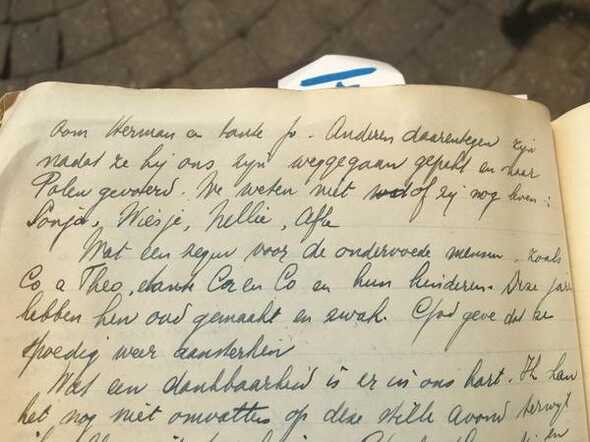 oom Herman en tante Jo. Anderen daarentegen zijn
nadat ze bij ons zijn weggegaan gepakt en naar
Polen gevoerd. We weten niet of zij nog leven:
Sonja, Wiesje, Nellie,
Wat een zegen voor de ondervoede mensen, zoals
Co a Theo, tante Co en Co en hun kinderen. Deze jaren
hebben hen oud gemaakt en zwak. God geve dat ze
spoedig weer aansterken
Wat een dankbaarheid is er in ons hart. Ik kan
het nog niet omvatten op deze stille avond terwijl